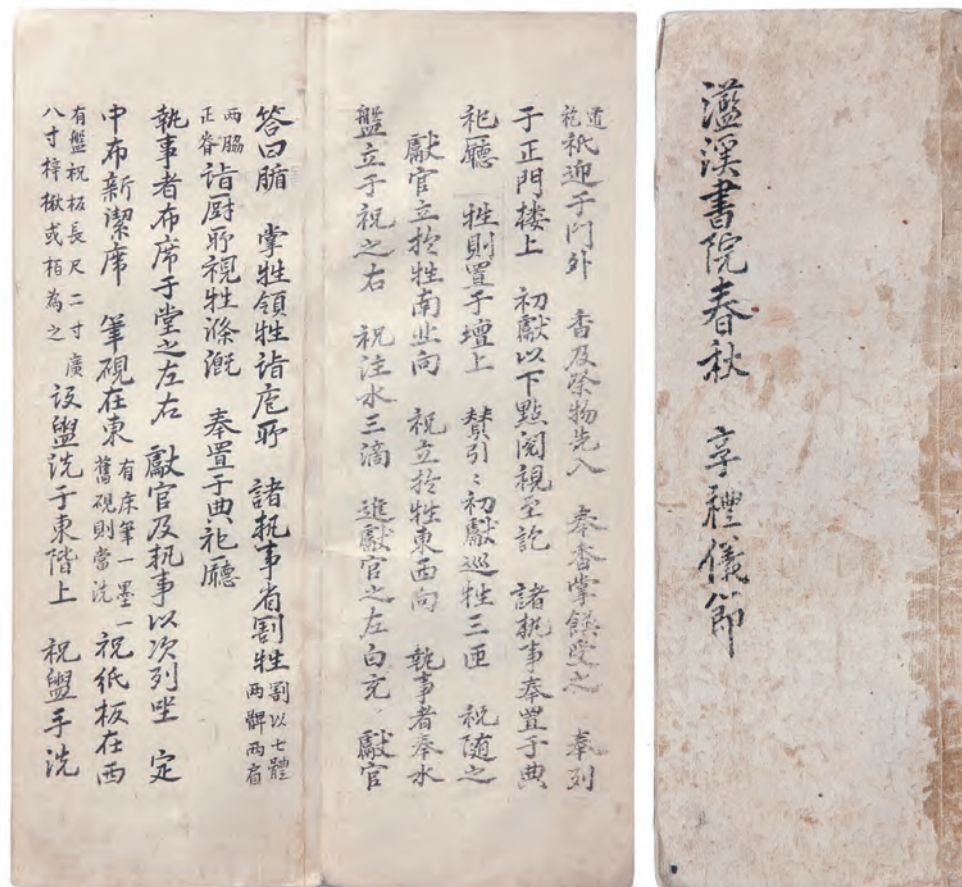 灆溪書院春秋 享禮儀節
道袍祇迎于門外 香及祭物先入 奉香掌饌受之 奉列
于正門楼上 初獻以下點閱視至訖 諸執事奉置于典
祀廳 牲則置于壇上 賛引〻初獻巡牲三匝 祝随之
獻官立於牲南北向 祝立於牲東西向 執事者奉水
盤立于祝之右 祝注水三滴 進獻官之左白充 獻官
答曰腯 掌牲領牲詣庖所 諸執事省割牲 割以七體兩髀兩肩
兩脇正脊 詣厨所視牲滌漑 奉置于典祀廳
執事者布席于堂之左右 獻官及執事以次列坐 定
中布新潔席 筆硯在東 有床筆一墨一舊硯則當洗 祝紙板在西
有盤祝板長尺二寸廣八寸梓楸或栢為之 設盥洗于東階上 祝盥手洗